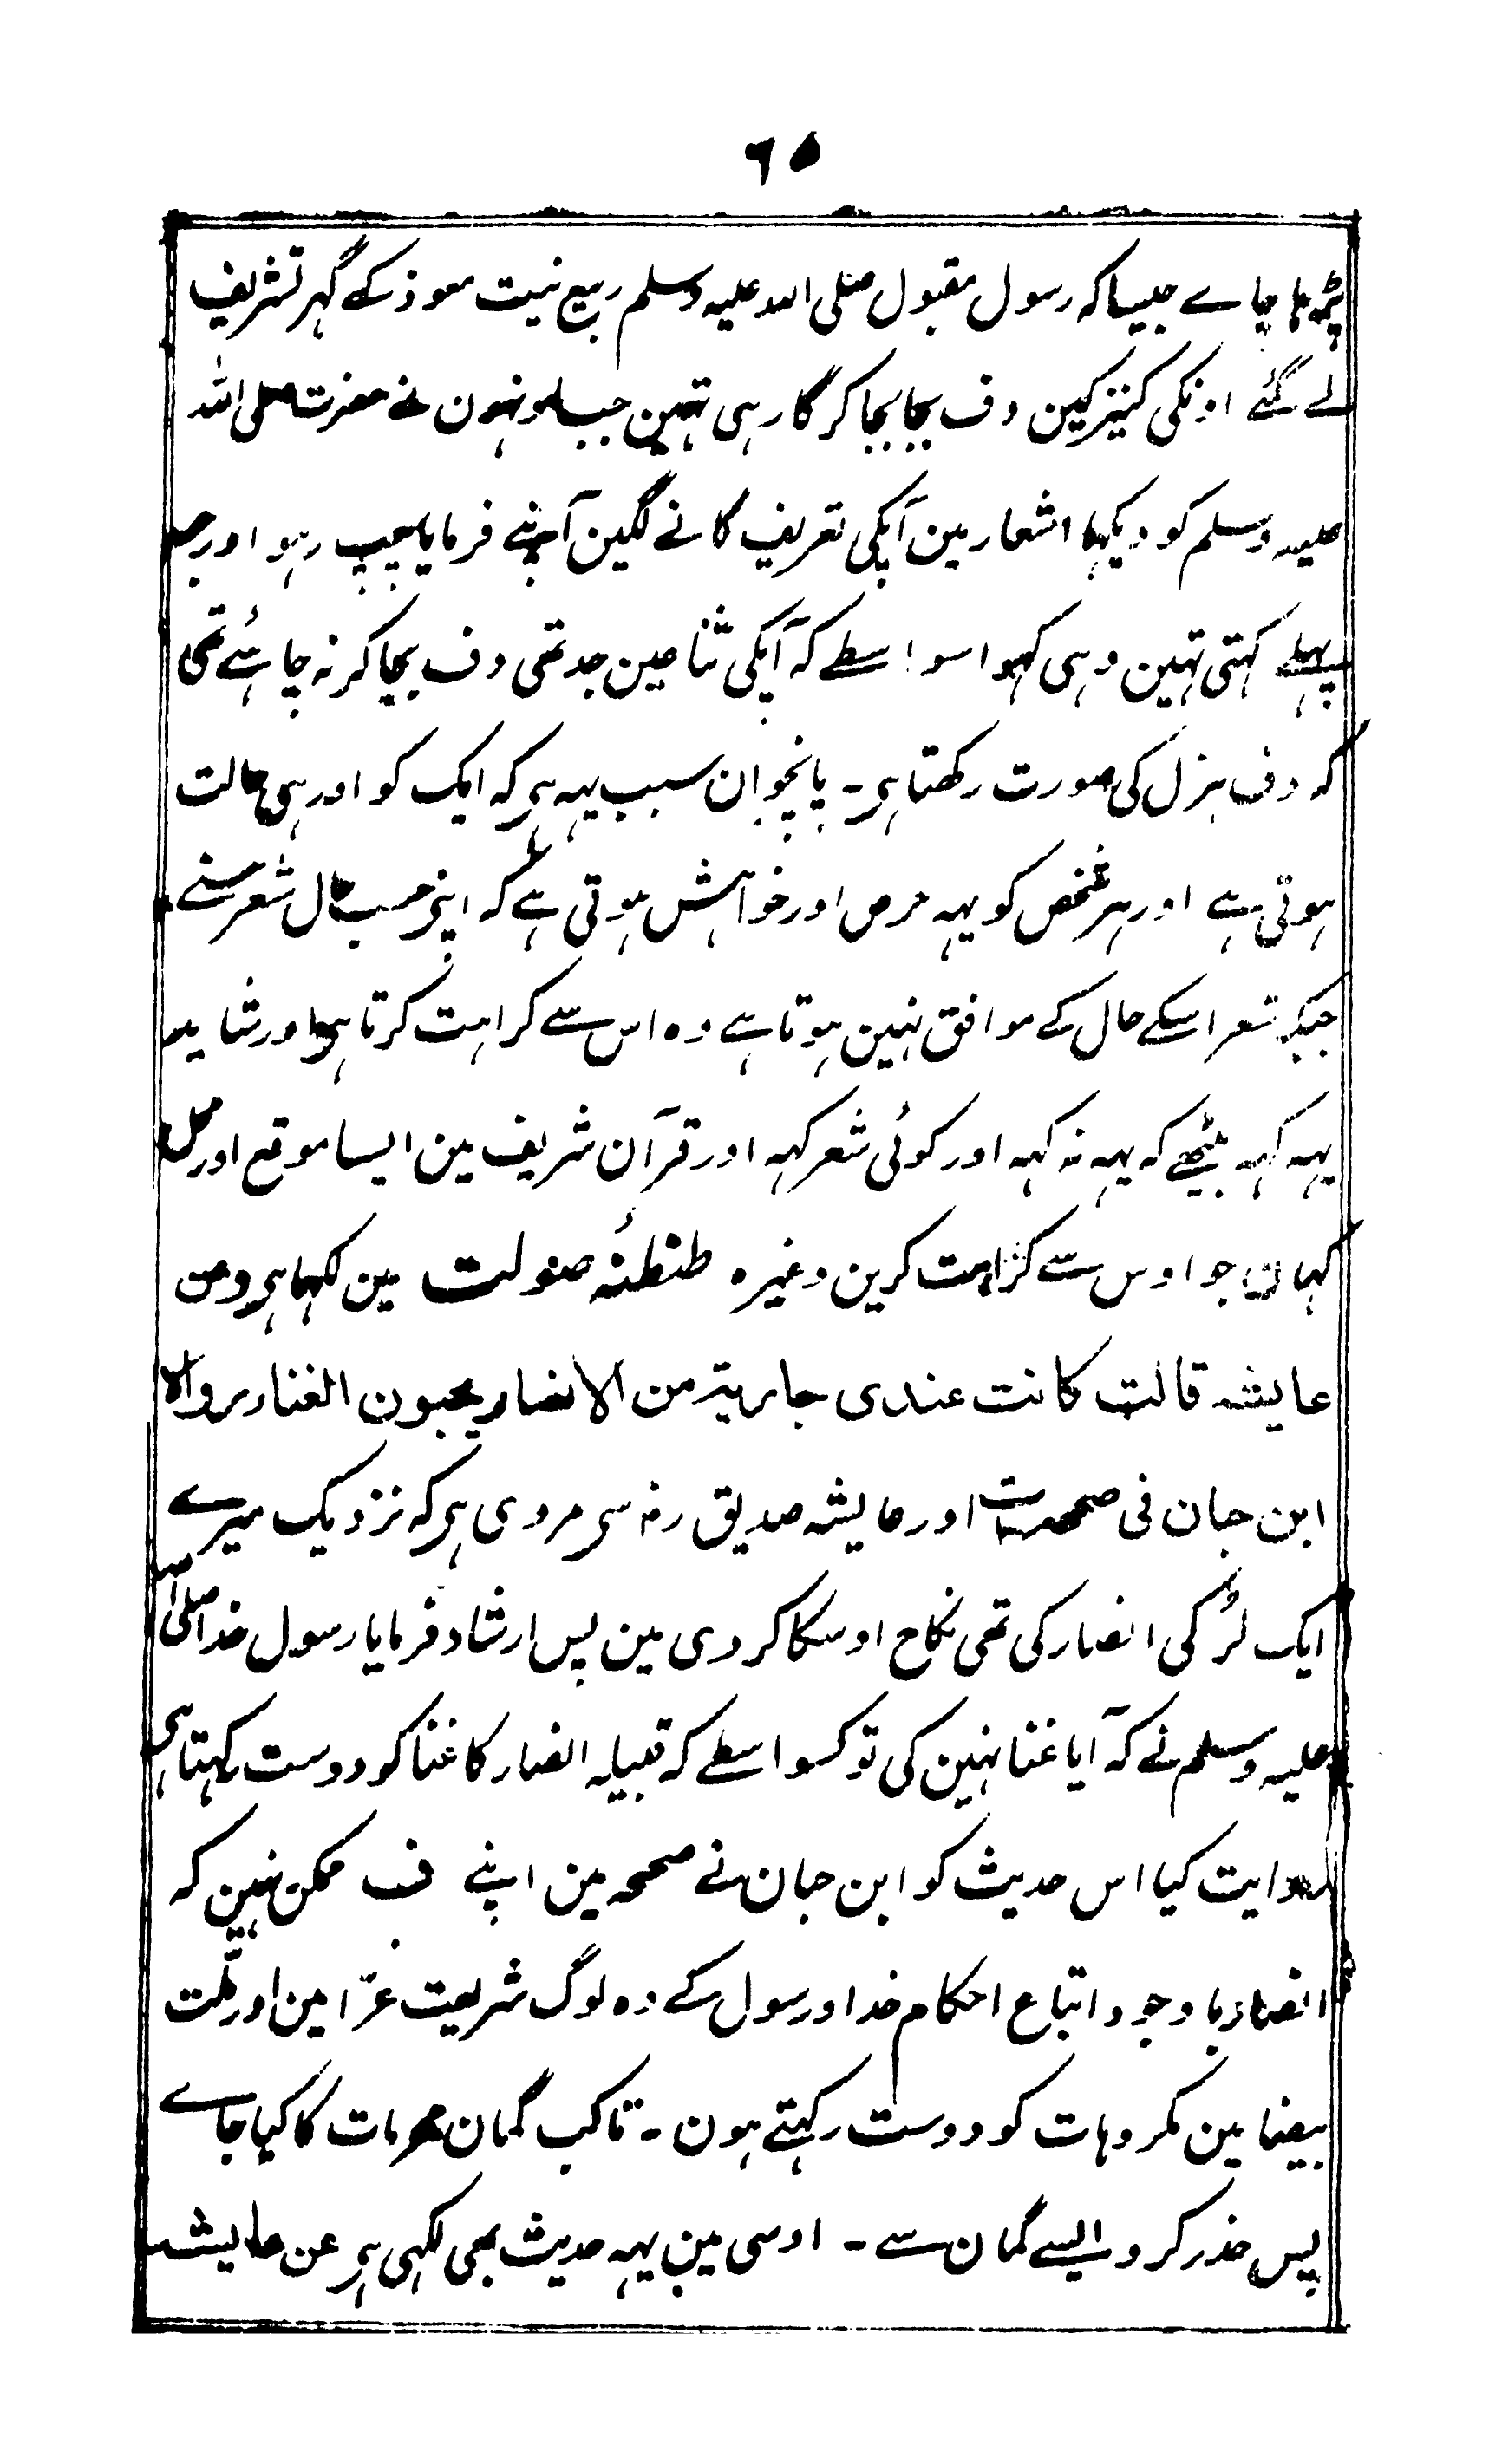 ٦٥
پڑہا جاے جیسا کہ رسول مقبول صلی اللہ علیہ وسلم ربیع بنیت معوذ کے گہر تشریف
لے گئے اونکی کنیزکین دف بجا بجا کر گا رہی تہین جب اونہون نے حضرت صلی اللہ
علیہ وسلم کو دیکہا اشعار مین آپکی تعریف گانے لگین آپنے فرمایا چپ رہو اور جو
پہلے کہتی تہین وہی کہو اسواسطے کہ آپکی ثنا عین جد تھی دف بجا کر نہ چاہئے تھی
کہ دف ہزل کی صورت رکھتا ہی ۔ پانچوان سبب یہہ ہی کہ ایک کو اور ہی حالت
ہوتی ہے اور ہر شخص کو یہہ حرص اور خواہش ہوتی ہے کہ اپنی حسب حال شعر سنے
جبکہ شعر اسکے حال کے موافق نہین ہوتا ہے وہ اس سے کراہت کرتا ہی اور شاید
یہہ کہہ بیٹھے کہ یہہ نہ کہہ اور کوئی شعر کہہ اور قرآن شریف مین ایسا موقع اور محل
کہان جو اوس سے کراہت کرین وغیرہ طنطنۂ صولت مین لکہا ہی وعن
عایشہ قالت کانت عندی جاریۃ من الانصار یحبون الغناء رواہ
ابن حبان فی صحیحہ اور عایشہ صدیق رضہ سی مروی ہی کہ نزدیک میرے
ایک لڑکی انصار کی تھی نکاح اوسکا کر دی مین پس ارشاد فرمایا رسول خدا صلی اللہ
علیہ وسلم نے کہ آیا غنا نہین کی تو کسواسطے کہ قبیلہ انصار کا غنا کو دوست رکہتا ہی
روایت کیا اس حدیث کو ابن حبان نے صحیحہ مین اپنے ف ممکن نہین کہ
انصار باوجود اتباع احکام خدا و رسول کے وہ لوگ شریعت غرّا مین اور ملّت
بیضا مین مکروہات کو دوست رکہتے ہون ۔ تا کب گمان محرمات کا کیا جاے
پس حذر کرو ایسے گمان سے ۔ اوسی مین یہہ حدیث بھی لکہی ہی عن عایشہ